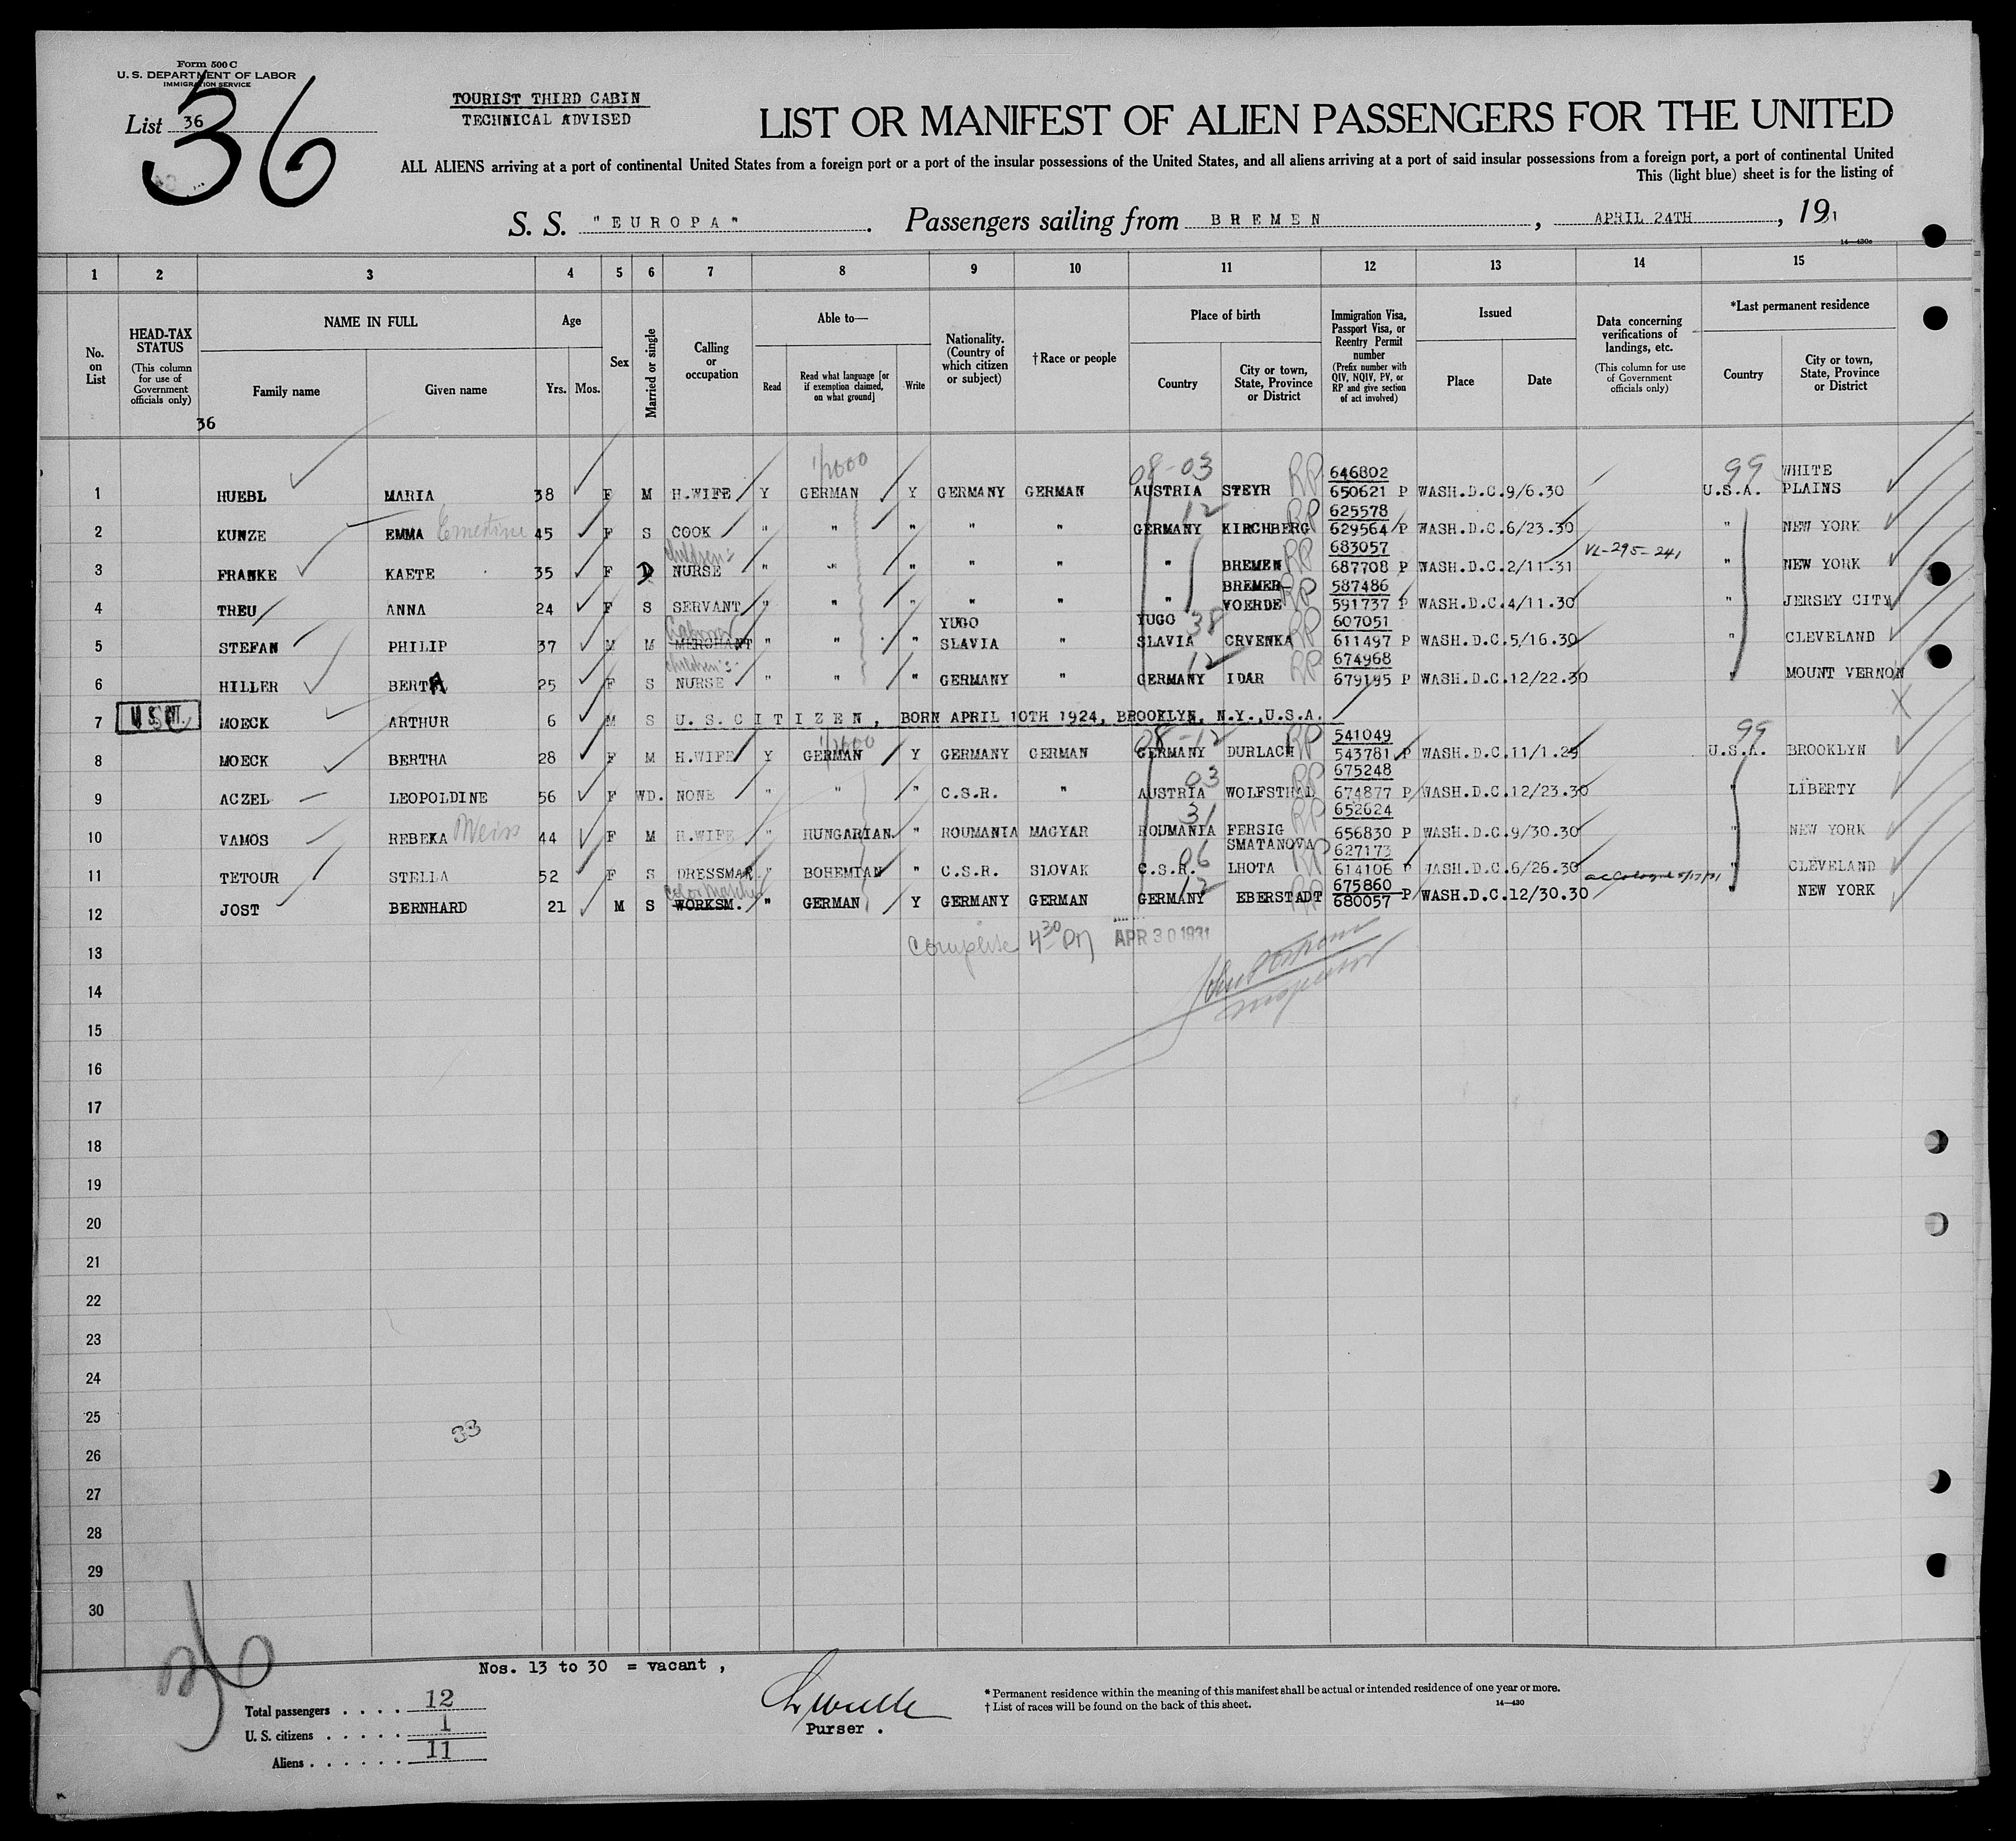 Form 500 C
U. S. DEPARTMENT OF LABOR
IMMIGRATION SERVICE
List 36
36
TOURIST THIRD CABIN
TECHNICAL ADVISED
LIST OR MANIFEST OF ALIEN PASSENGERS FOR THE UNITED
ALL ALIENS arriving at a port of continental United States from a foreign port or a port of the insular possessions of the United States, and all aliens arriving at a port of said insular possessions from a foreign port, a port of continental United
This (light blue) sheet is for the listing of
S. S. "EUROPA". Passengers sailing from BREMEN, APRIL 24TH, 1931
14—430c
1 2 3 4 5 6 7 8 9 10 11 12 13 14 15
No. on List
HEAD-TAX STATUS (This column for use of Government officials only)
NAME IN FULL
Family name
Given name
Age
Yrs. Mos.
Sex
Married or single
Calling or occupation
Able to—
Read
Read what language [or if exemption claimed, on what ground]
Write
Nationality. (Country of which citizen or subject)
† Race or people
Place of birth
Country
City or town, State, Province or District
Immigration Visa, Passport Visa, or Reentry Permit number (Prefix number with QIV, NQIV, PV, or RP and give section of act involved)
Issued
Place
Date
Data concerning verifications of landings, etc. (This column for use of Government officials only)
*Last permanent residence
Country
City or town, State, Province or District
36
1/2000 08-03 99
1 HUEBL MARIA 38 F M H.WIFE Y GERMAN Y GERMANY GERMAN AUSTRIA STEYR RP 646802 650621 P WASH.D.C. 9/6.30 U.S.A. WHITE PLAINS
2 KUNZE EMMA Ernestine 45 F S COOK " " " " " GERMANY 12 KIRCHBERG RP 625578 629564 P WASH.D.C. 6/23.30 " NEW YORK
3 FRANKE KAETE 35 F D children's NURSE " " " " " " BREMEN RP 683057 687708 P WASH.D.C. 2/11.31 VL-295-241 " NEW YORK
4 TREU ANNA 24 F S SERVANT " " " " " " BREMER-VOERDE RP 587486 591737 P WASH.D.C. 4/11.30 " JERSEY CITY
5 STEFAN PHILIP 37 M M MERCHANT Laborer " " " YUGO SLAVIA " YUGO SLAVIA 38 CRVENKA RP 607051 611497 P WASH.D.C. 5/16.30 " CLEVELAND
6 HILLER BERTA 25 F S children's NURSE " " " GERMANY " GERMANY 12 IDAR RP 674968 679195 P WASH.D.C. 12/22.30 " MOUNT VERNON
7 MOECK ARTHUR 6 M S U.S.CITIZEN, BORN APRIL 10TH 1924, BROOKLYN, N.Y.,U.S.A. X
1/2000 08-12 99
8 MOECK BERTHA 28 F M H.WIFE Y GERMAN Y GERMANY GERMAN GERMANY DURLACH RP 541049 543781 P WASH.D.C. 11/1.29 U.S.A. BROOKLYN
9 ACZEL LEOPOLDINE 56 F WD. NONE " " " C.S.R. " AUSTRIA 03 WOLFSTHAL RP 675248 674877 P WASH.D.C. 12/23.30 " LIBERTY
10 VAMOS REBEKA Weiss 44 F M H.WIFE " HUNGARIAN " ROUMANIA MAGYAR ROUMANIA 31 FERSIG RP 652624 656830 P WASH.D.C. 9/30.30 " NEW YORK
11 TETOUR STELLA 52 F S DRESSMAK. " BOHEMIAN " C.S.R. SLOVAK C.S.R. 06 SMATANOVA LHOTA RP 627173 614106 P WASH.D.C. 6/26.30 " CLEVELAND
12 JOST BERNHARD 21 M S WORKSM. " GERMAN Y GERMANY GERMAN GERMANY 12 EBERSTADT RP 675860 680057 P WASH.D.C. 12/30.30 NEW YORK
13 4 30 PM APR 30 1931
14
Inspector
15
16
17
18
19
20
21
22
23
24
25
33
26
27
28
29
30
36
Nos. 13 to 30 = vacant ,
Total passengers . . . . 12
U. S. citizens . . . . . 1
Aliens . . . . . . 11
Purser .
* Permanent residence within the meaning of this manifest shall be actual or intended residence of one year or more.
† List of races will be found on the back of this sheet.
14—430